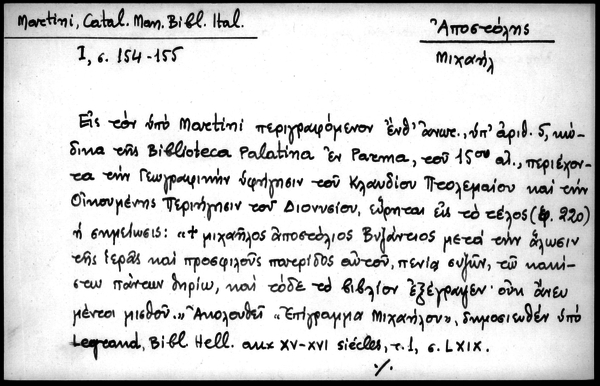 Martini, Catal. Man. Bibl. Ital.
Ἀποστόλης
I, σ. 154-155
Μιχαήλ
Εἰς τὸν ὑπὸ Martini περιγραφόμενον ἔνθ' ἀνωτ., ὑπ' ἀριθ. 5, κώ-
δικα τῆς Biblioteca Palatina ἐν Parma, τοῦ 15ου αἰ., περιέχον-
τα τὴν Γεωγραφικὴν ὑφήγησιν τοῦ Κλαυδίου Πτολεμαίου καὶ τὴν
Οἰκουμένης Περιήγησιν τοῦ Διονυσίου, εὕρηται εἰς τὸ τέλος (φ. 220)
ἡ σημείωσις: «+ μιχαῆλος ἀποστόλιος Βυζάντιος μετὰ τὴν ἅλωσιν
τῆς ἱερᾶς καὶ προσφιλοῦς πατρίδος αὐτοῦ, πενίᾳ συζῶν, τῷ κακί-
στῳ πάντων θηρίῳ, καὶ τόδε τὸ βιβλίον ἐξέγραψεν· οὐκ ἄνευ
μέντοι μισθοῦ.» Ἀκολουθεῖ «Ἐπίγραμμα Μιχαήλου», δημοσιευθὲν ὑπὸ
Legrand, Bibl. Hell. aux XV-XVI siècles, τ. 1, σ. LXIX.
./.